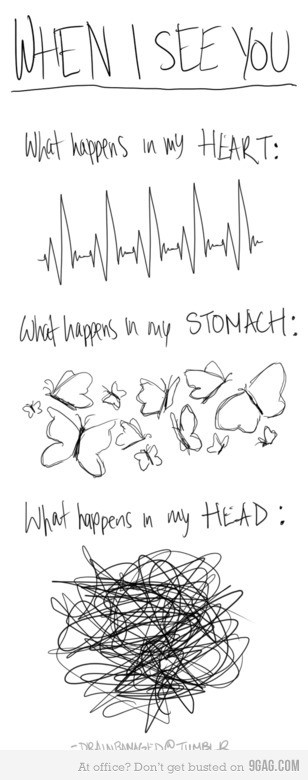 WHEN I SEE YOU
What happens in my HEART:
What happens in my STOMACH:
What happens in my HEAD:
At office? Don't get busted on 9GAG.COM